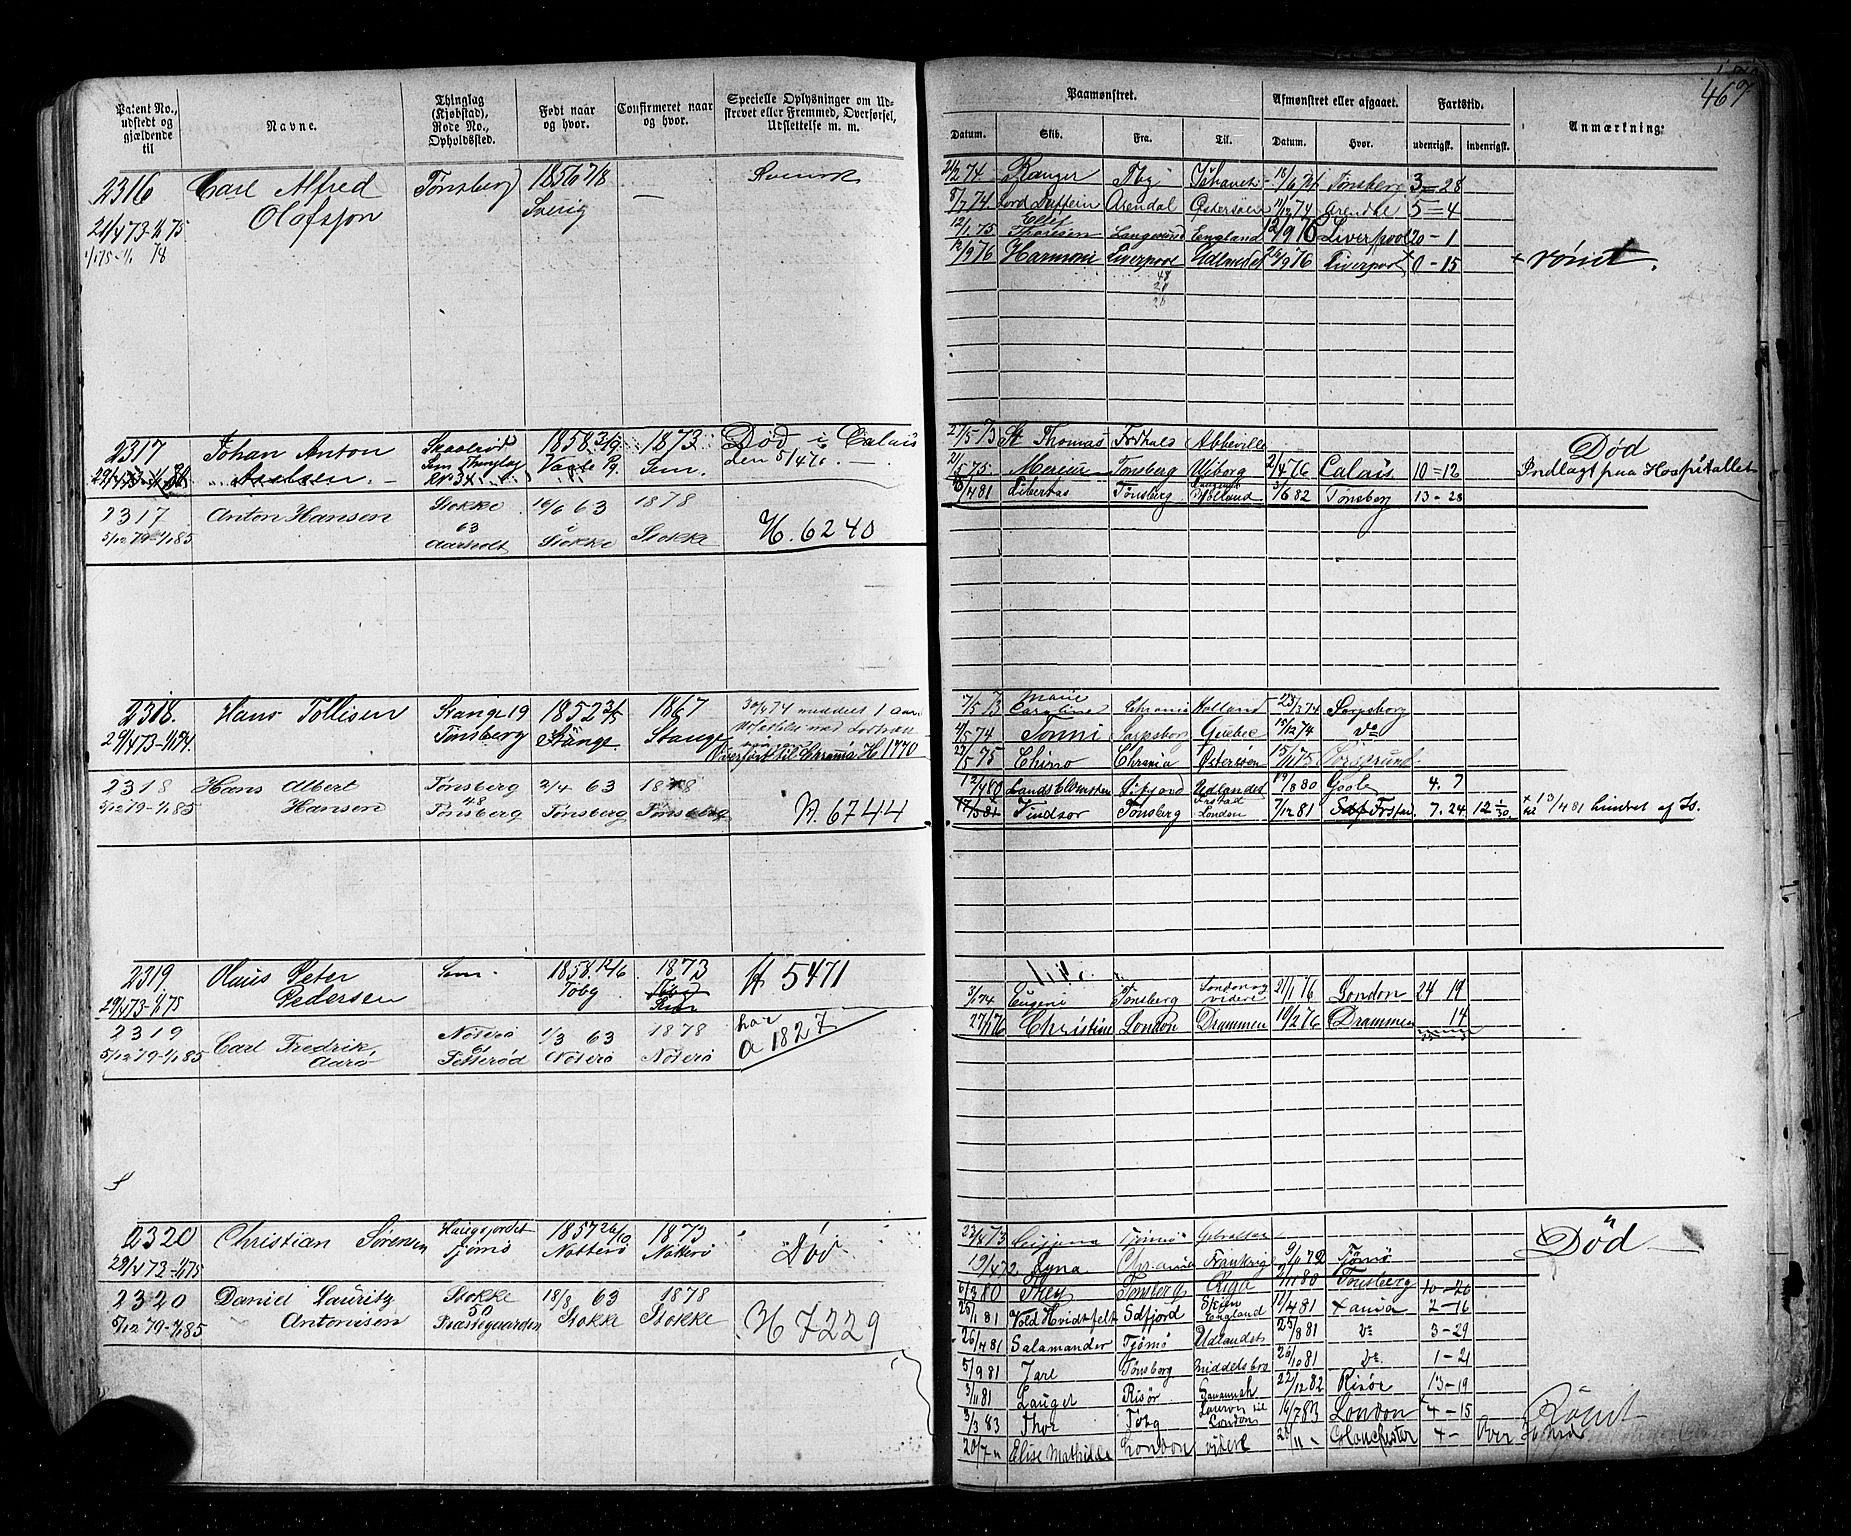 467
Patent No., udstedt og gjældende til
Navne.
Thinglag (Kjøbstad), Rode No., Opholdssted.
Født naar og hvor.
Confirmeret naar og hvor.
Specielle Oplysninger om Udskrevet eller Fremmed, Overførsel, Udslettelse m. m.
Paamønstret.
Afmønstret eller afgaaet.
Fartstid.
Anmærkning.
Datum. Skib. Fra. Til. Datum. Hvor. udenrigsk. indenrigsk.
2316 Carl Alfred Tønsberg 1856 7/8 — Svensk
Olofsson Sverig
21/4 73-1/1 75
1/1 75-1/1 78
74 Ranger Tbg 18/6 74 Tønsberg 3=28
8/7 74 Lord Dufferin Arendal Østersøen 74 5=4
12/1 75 Ellef Thoresen Langesund England 12/9 76 Liverpool 20-1
12/9 76 Harmoni Liverpool Udlandet 26/9 76 Liverpool 0-15 × rømt.
48
20
28
2317 Johan Anton 1858 3/9 1873 Død i Calais
Axelsen Sem Thinglag Sem. den 5/4 76.
RN 34
21/5 73 St Thomas Abbeville Død
21/5 75 Tønsberg Viborg 2/4 76 Calais 10=12 Indlagt paa Hospitallet
4 81 Libertas Tønsberg 3/6 82 Tønsberg 13-28
2317 Anton Hansen Stokke 16/6 63 1878
5/12 79-1/1 85 63 Stokke Stokke H. 6240
2318. Hans Tollisen Stange 19 1852 3/5 1867 30/4 74 meddelt 1 Aars
29/4 73-1/1 74 Tønsberg Stange Stange Udsættelse med
Overført til Chrania H 1770
7/5 73 Marie Caroline Chrania Holland Sarpsborg
74 Tonni Sarpsborg Quebec 15/12 74 do
22/5 75 Chimo Chrania Østersøen 15/11 75 Porsgrund
2318 Hans Albert Tønsberg 2/4 63 1878
5/12 79-1/1 85 Hansen 48 Tønsberg Tønsberg Tønsberg N. 6744
12/4 80 Udlandet 19/8 80 Goole 4. 7
17/5 81 Vindsor Tønsberg London 7/12 81 7. 24 12 1/30 hindret af Is.
2319. Hans Peter Sem. 1858 12/6 1873 H 5471
29/4 73-1/1 75 Pedersen Tøbg
3/1 74 Eugeni Tønsberg London og videre 21/1 76 London 24 19
27/1 76 Christine London Drammen 19/2 76 Drammen 14
2319 Carl Fredrik Nøterø 1/3 63 1878 har
5/12 79-1/1 85 Aarø 61 Nøterø Nøterø a 1827
2320 Christian Sørensen 1857 26/10 1873 Død
29/4 73-1/1 75 Tjømø Nøtterø Nøtterø
23/4 73 Tjømø Gibraltar Død
19/4 72 Chrania Frankrig Tjømø
2320 Daniel Lauritz Stokke 18/8 63 1878
5/12 79-1/1 85 Antonson 50 Stokke Stokke H 7229
6/3 80 Tønsberg Riga 2/11 80 Tønsberg 10-26
25/1 81 Hvidtfelt Sdfjord England 11/4 81 Xania 2-16
26/4 81 Salamander Tjømø Udlandet 25/8 81 do 3-29
5/9 81 Jarl Tønsberg Middelsbro 26/10 81 do 1-21
3/11 81 Lauget Risør Savannah 22/12 82 Risør 13-19
3/3 83 Thor Tøbg til London 16/7 83 London 4-15 Rømt
20/7 " Elise Mathilde London videre Manchester 4-